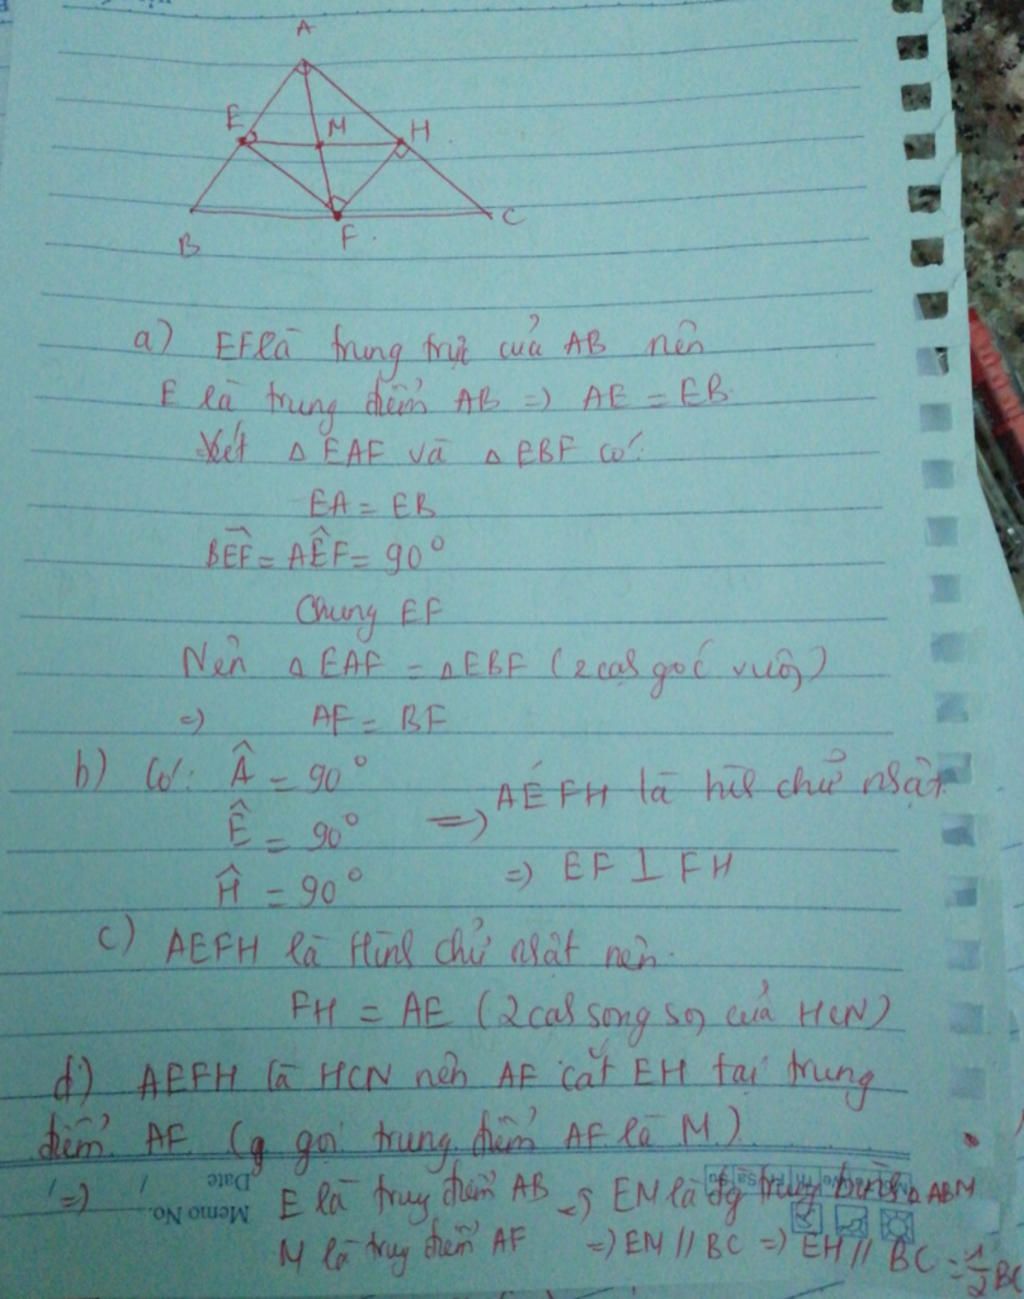 A
E
M
H
B
F
C
a) EF là trung trực của AB nên
E là trung điểm AB => AE = EB
Xét △ EAF và △ EBF có:
EA = EB
BÊF = AÊF = 90°
Chung EF
Nên △ EAF = △ EBF (2 cạh góc vuôg)
=> AF = BF
b) Có: Â = 90°
Ê = 90°
Ĥ = 90°
=> AEFH là hìh chữ nhật
=> EF ⊥ FH
c) AEFH là Hìnl chữ nhật nên
FH = AE (2 cạh song sog của HCN)
d) AEFH là HCN nên AF cắt EH tại trung
điểm AF (g gọi trung điểm AF là M)
=> E là trug điểm AB => EM là đg trug bình △ ABM
M là trug điểm AF => EM // BC => EH // BC = 1/2 BC
Date
Memo No.